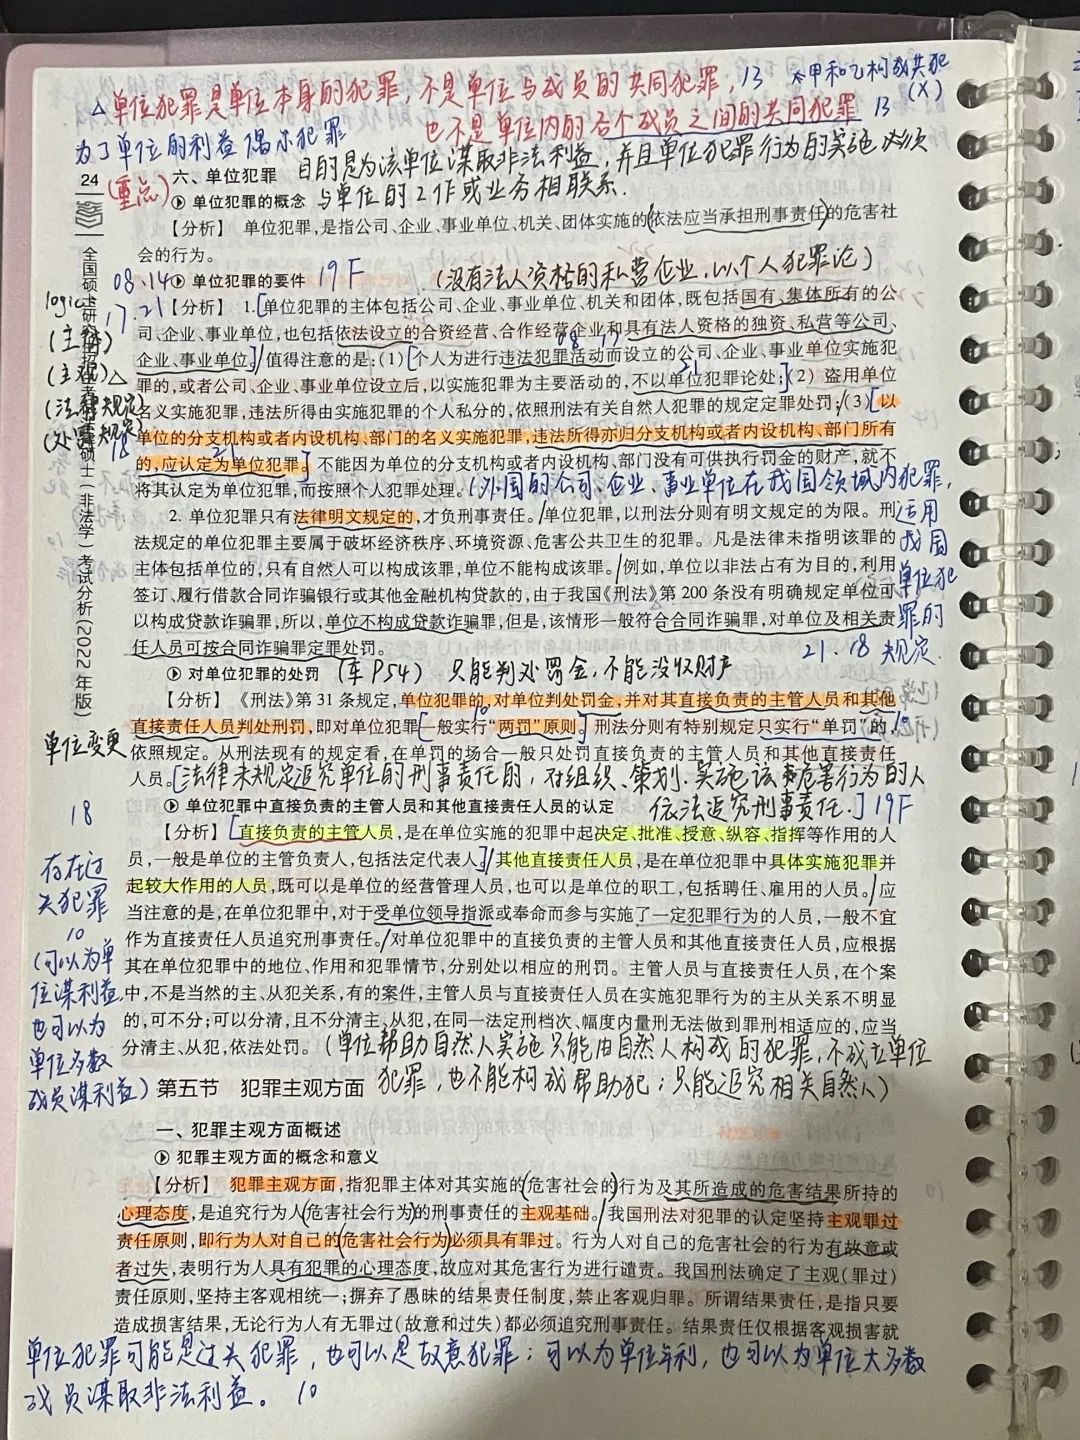 △单位犯罪是单位本身的犯罪,不是单位与成员的共同犯罪;13 *甲和乙构成共犯(X)
也不是单位内的各个成员之间的共同犯罪 13
为了单位的利益偶尔犯罪
目的是为该单位谋取非法利益,并且单位犯罪行为的实施必须
与单位的工作或业务相联系.
24
(重点)
六、单位犯罪
单位犯罪的概念
【分析】 单位犯罪,是指公司、企业、事业单位、机关、团体实施的(依法应当承担刑事责任)的危害社
会的行为。
08.14 单位犯罪的要件 19F (没有法人资格的私营企业,以个人犯罪论)
17.21【分析】 1.[单位犯罪的主体包括公司、企业、事业单位、机关和团体,既包括国有、集体所有的公
司、企业、事业单位,也包括依法设立的合资经营、合作经营企业和具有法人资格的独资、私营等公司、
08 17
企业、事业单位。]值得注意的是:(1)[个人为进行违法犯罪活动而设立的公司、企业、事业单位实施犯
21
罪的,或者公司、企业、事业单位设立后,以实施犯罪为主要活动的,不以单位犯罪论处;](2) 盗用单位
名义实施犯罪,违法所得由实施犯罪的个人私分的,依照刑法有关自然人犯罪的规定定罪处罚;(3)[以
单位的分支机构或者内设机构、部门的名义实施犯罪,违法所得亦归分支机构或者内设机构、部门所有
18 21
的,应认定为单位犯罪。]不能因为单位的分支机构或者内设机构、部门没有可供执行罚金的财产,就不
将其认定为单位犯罪,而按照个人犯罪处理。(外国的公司、企业、事业单位在我国领域内犯罪,
适用
我国
单位犯
罪的
规定.
logic
(主体)
(主观)△
(法律规定)
(处罚规定)
全国硕士研究生招生考试法律硕士(非法学)考试分析(2022年版)
2. 单位犯罪只有法律明文规定的,才负刑事责任。/单位犯罪,以刑法分则有明文规定的为限。刑
法规定的单位犯罪主要属于破坏经济秩序、环境资源、危害公共卫生的犯罪。凡是法律未指明该罪的
主体包括单位的,只有自然人可以构成该罪,单位不能构成该罪。/例如,单位以非法占有为目的,利用
签订、履行借款合同诈骗银行或其他金融机构贷款的,由于我国《刑法》第 200 条没有明确规定单位可
以构成贷款诈骗罪,所以,单位不构成贷款诈骗罪,但是,该情形一般符合合同诈骗罪,对单位及相关责
任人员可按合同诈骗罪定罪处罚。
21.18
对单位犯罪的处罚 (车 P54) 只能判处罚金,不能没收财产
【分析】 《刑法》第 31 条规定,单位犯罪的,对单位判处罚金,并对其直接负责的主管人员和其他
10
直接责任人员判处刑罚,即对单位犯罪[一般实行“两罚”原则。]刑法分则有特别规定只实行“单罚”的,10
依照规定。从刑法现有的规定看,在单罚的场合一般只处罚直接负责的主管人员和其他直接责任
人员。[法律未规定追究单位的刑事责任的,对组织、策划、实施该危害行为的人
依法追究刑事责任.] 19F
单位变更
单位犯罪中直接负责的主管人员和其他直接责任人员的认定
【分析】[直接负责的主管人员,是在单位实施的犯罪中起决定、批准、授意、纵容、指挥等作用的人
员,一般是单位的主管负责人,包括法定代表人。]/其他直接责任人员,是在单位犯罪中具体实施犯罪并
起较大作用的人员,既可以是单位的经营管理人员,也可以是单位的职工,包括聘任、雇用的人员。/应
当注意的是,在单位犯罪中,对于受单位领导指派或奉命而参与实施了一定犯罪行为的人员,一般不宜
作为直接责任人员追究刑事责任。/对单位犯罪中的直接负责的主管人员和其他直接责任人员,应根据
其在单位犯罪中的地位、作用和犯罪情节,分别处以相应的刑罚。主管人员与直接责任人员,在个案
中,不是当然的主、从犯关系,有的案件,主管人员与直接责任人员在实施犯罪行为的主从关系不明显
的,可不分;可以分清,且不分清主、从犯,在同一法定刑档次、幅度内量刑无法做到罪刑相适应的,应当
分清主、从犯,依法处罚。(单位帮助自然人实施只能由自然人构成的犯罪,不成立单位
犯罪,也不能构成帮助犯;只能追究相关自然人)
18
存在过
失犯罪
10
(可以为单
位谋利益
也可以为
单位多数
成员谋利益)
第五节 犯罪主观方面
一、犯罪主观方面概述
犯罪主观方面的概念和意义
【分析】 犯罪主观方面,指犯罪主体对其实施的(危害社会的)行为及其所造成的危害结果所持的
心理态度,是追究行为人(危害社会行为)的刑事责任的主观基础。/我国刑法对犯罪的认定坚持主观罪过
责任原则,即行为人对自己的(危害社会行为)必须具有罪过。行为人对自己的危害社会的行为有故意或
者过失,表明行为人具有犯罪的心理态度,故应对其危害行为进行谴责。我国刑法确定了主观(罪过)
责任原则,坚持主客观相统一;摒弃了愚昧的结果责任制度,禁止客观归罪。所谓结果责任,是指只要
造成损害结果,无论行为人有无罪过(故意和过失)都必须追究刑事责任。结果责任仅根据客观损害就
单位犯罪可能是过失犯罪,也可以是故意犯罪;可以为单位牟利,也可以为单位大多数
成员谋取非法利益。 10